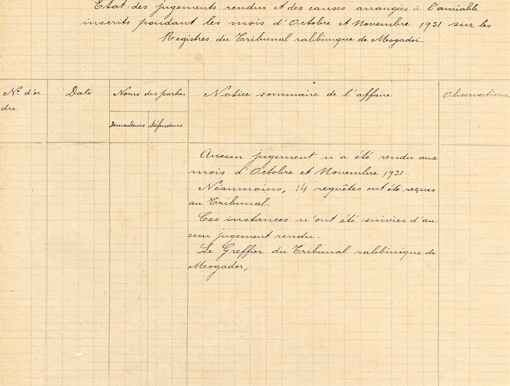 Etat des jugements rendus et des causes arrangées à l'amiable
inscrits pendant les mois d'Octobre et Novembre 1931 sur les
Registres du Tribunal rabbinique de Mogador
N° d'or
dre
Date
Noms des parties
Demandeurs Défendeurs
Notice sommaire de l'affaire
Observations
Aucun jugement n'a été rendu aux
mois d'Octobre et Novembre 1931.
Néanmoins, 14 requêtes ont été reçues
au Tribunal.
Ces instances n'ont été suivies d'au
cun jugement rendu.
Le Greffier du Tribunal rabbinique de
Mogador,